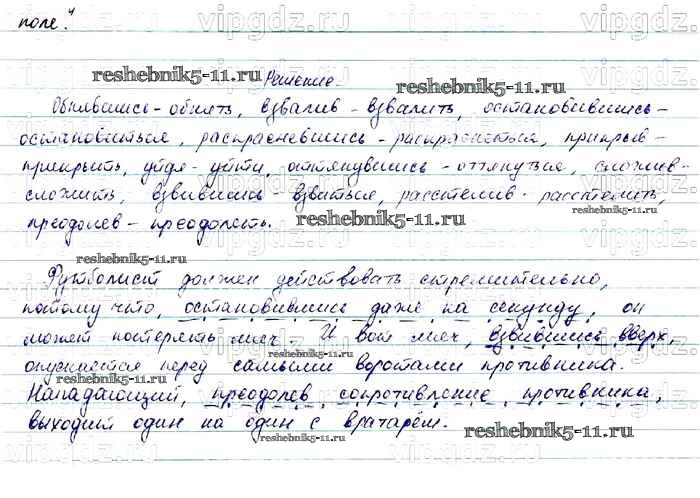 поле."
Решение.
Обнявшись - обнять, взвалив - взвалить, остановившись -
остановиться, раскрасневшись - раскраснеться, прикрыв -
прикрыть, уйдя - уйти, оттянувшись - оттянуться, сложив -
сложить, взвившись взвиться, расстелив - расстелить,
преодолев - преодолеть.
Футболист должен действовать стремительно,
потому что, остановившись даже на секунду, он
может потерять мяч. И вот мяч, взвившись вверх,
опускается перед самыми воротами противника.
Нападающий, преодолев сопротивление противника,
выходит один на один с вратарём.
reshebnik5-11.ru
vipgdz.ru